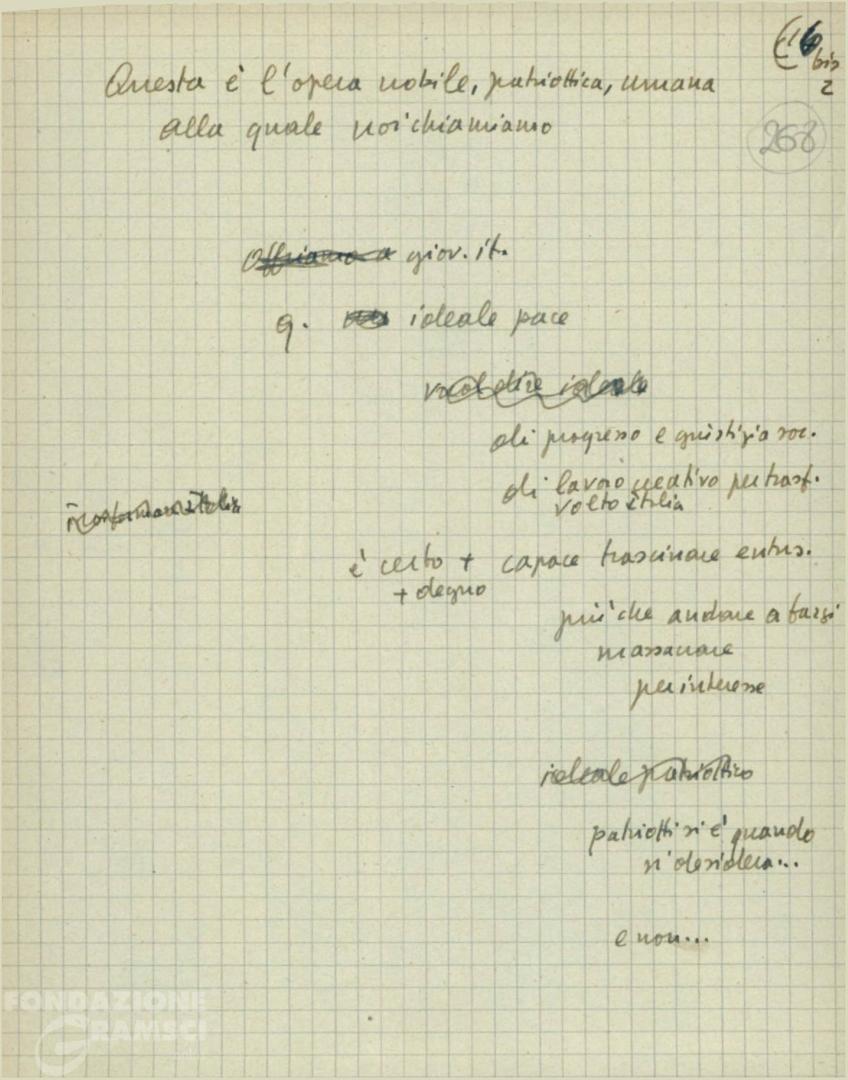 16
bis
2
Questa è l'opera nobile, patriottica, umana
alla quale noi chiamiamo
268
Offriamo a giov. it.
q. ideale pace
vuol dire ideale
di progresso e giustizia soc.
di lavoro creativo per trasf.
volto italia
è certo + capace trascinare entus.
+ degno
più che andare a farsi
massacrare
per interesse
ideale patriottico
patriotti si è quando
si desidera...
e non...
FONDAZIONE
GRAMSCI